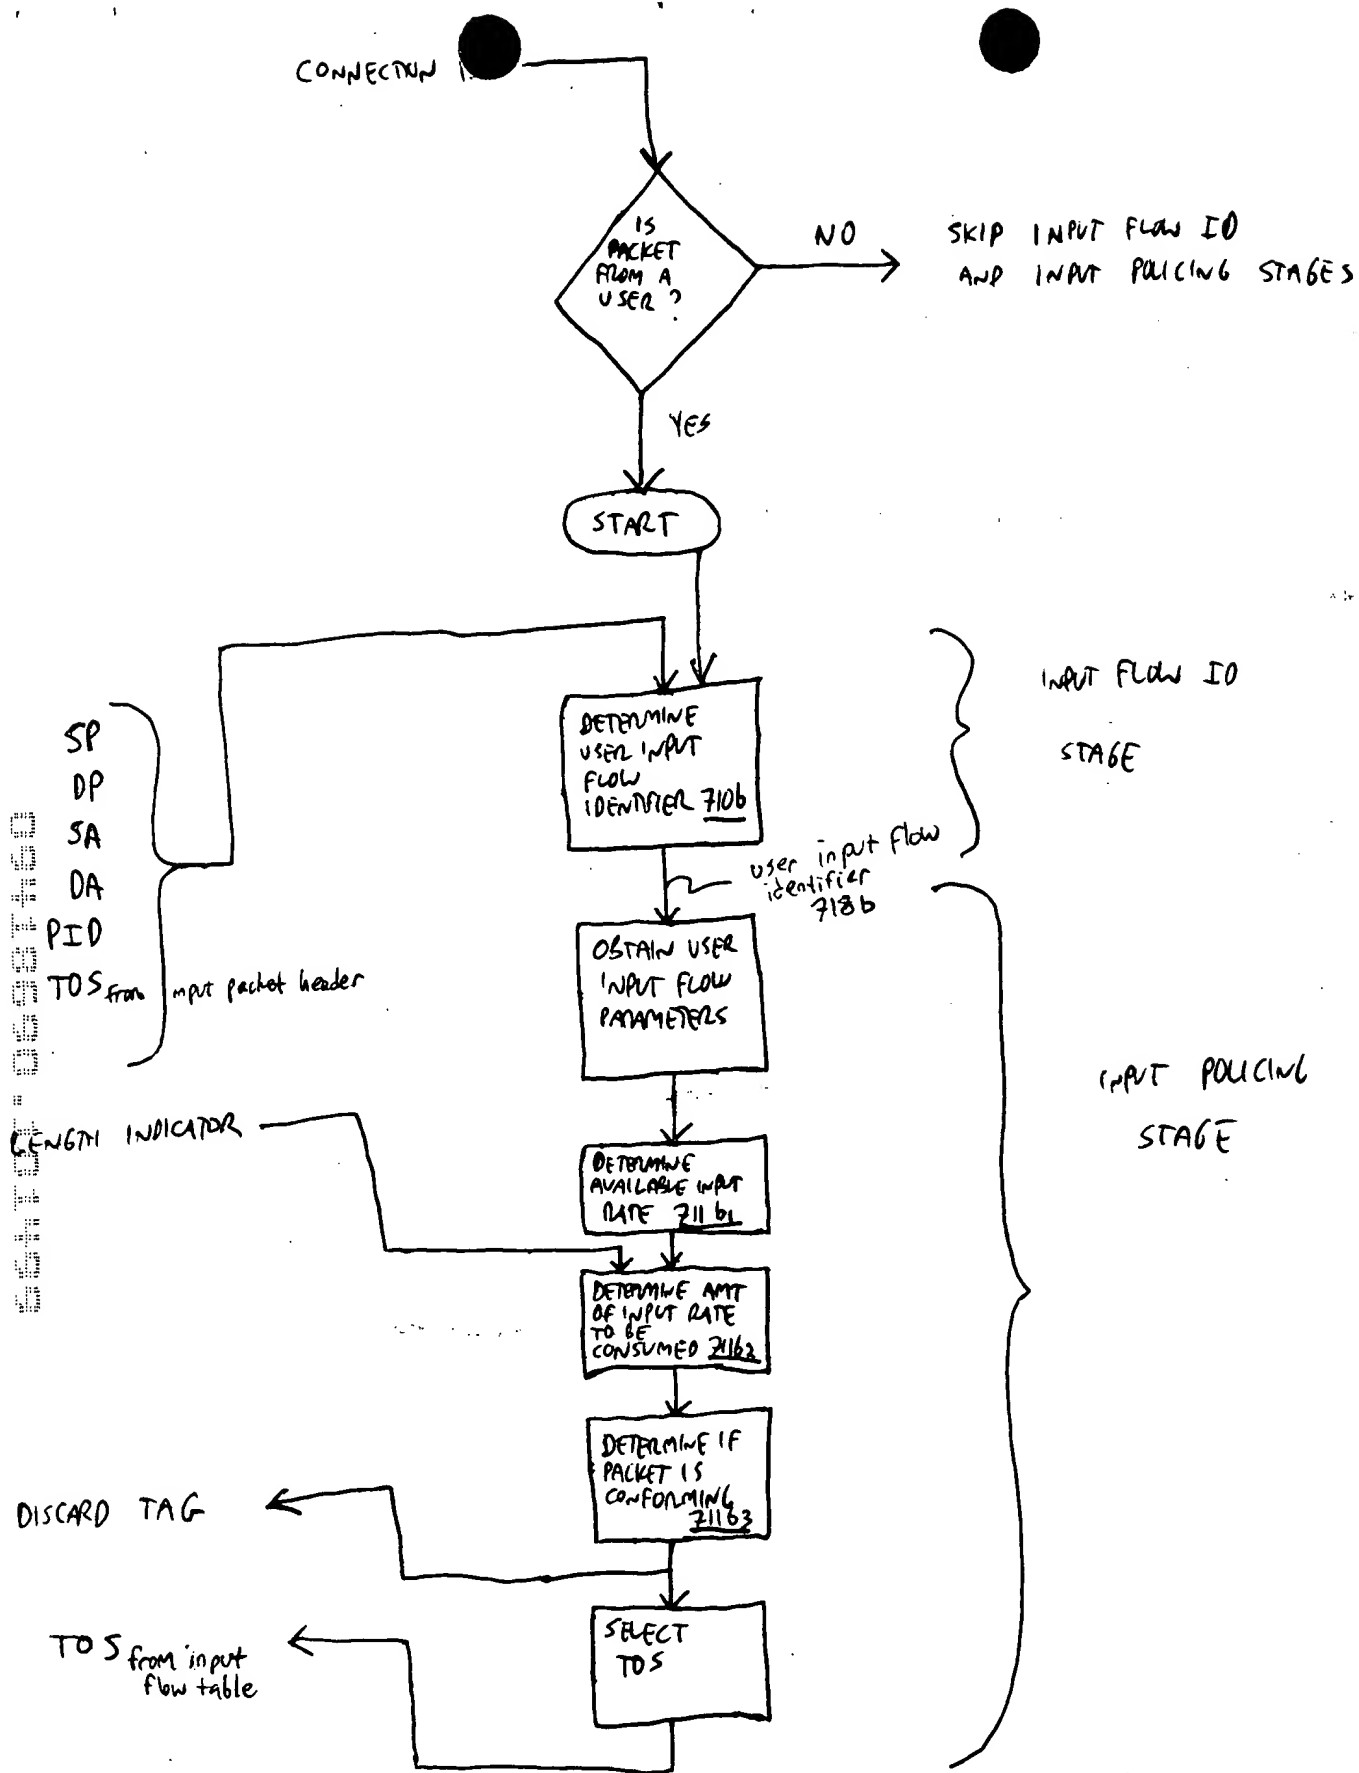 CONNECTION
IS
PACKET
FROM A
USER ?
NO
SKIP INPUT FLOW ID
AND INPUT POLICING STAGES
YES
START
DETERMINE
USER INPUT
FLOW
IDENTIFIER 710b
INPUT FLOW ID
STAGE
SP
DP
SA
DA
PID
TOS from input packet header
user input flow
identifier
718b
OBTAIN USER
INPUT FLOW
PARAMETERS
INPUT POLICING
STAGE
LENGTH INDICATOR
DETERMINE
AVAILABLE INPUT
RATE 711b1
DETERMINE AMT
OF INPUT RATE
TO BE
CONSUMED 711b2
DETERMINE IF
PACKET IS
CONFORMING
711b3
DISCARD TAG
SELECT
TOS
TOS from input
flow table